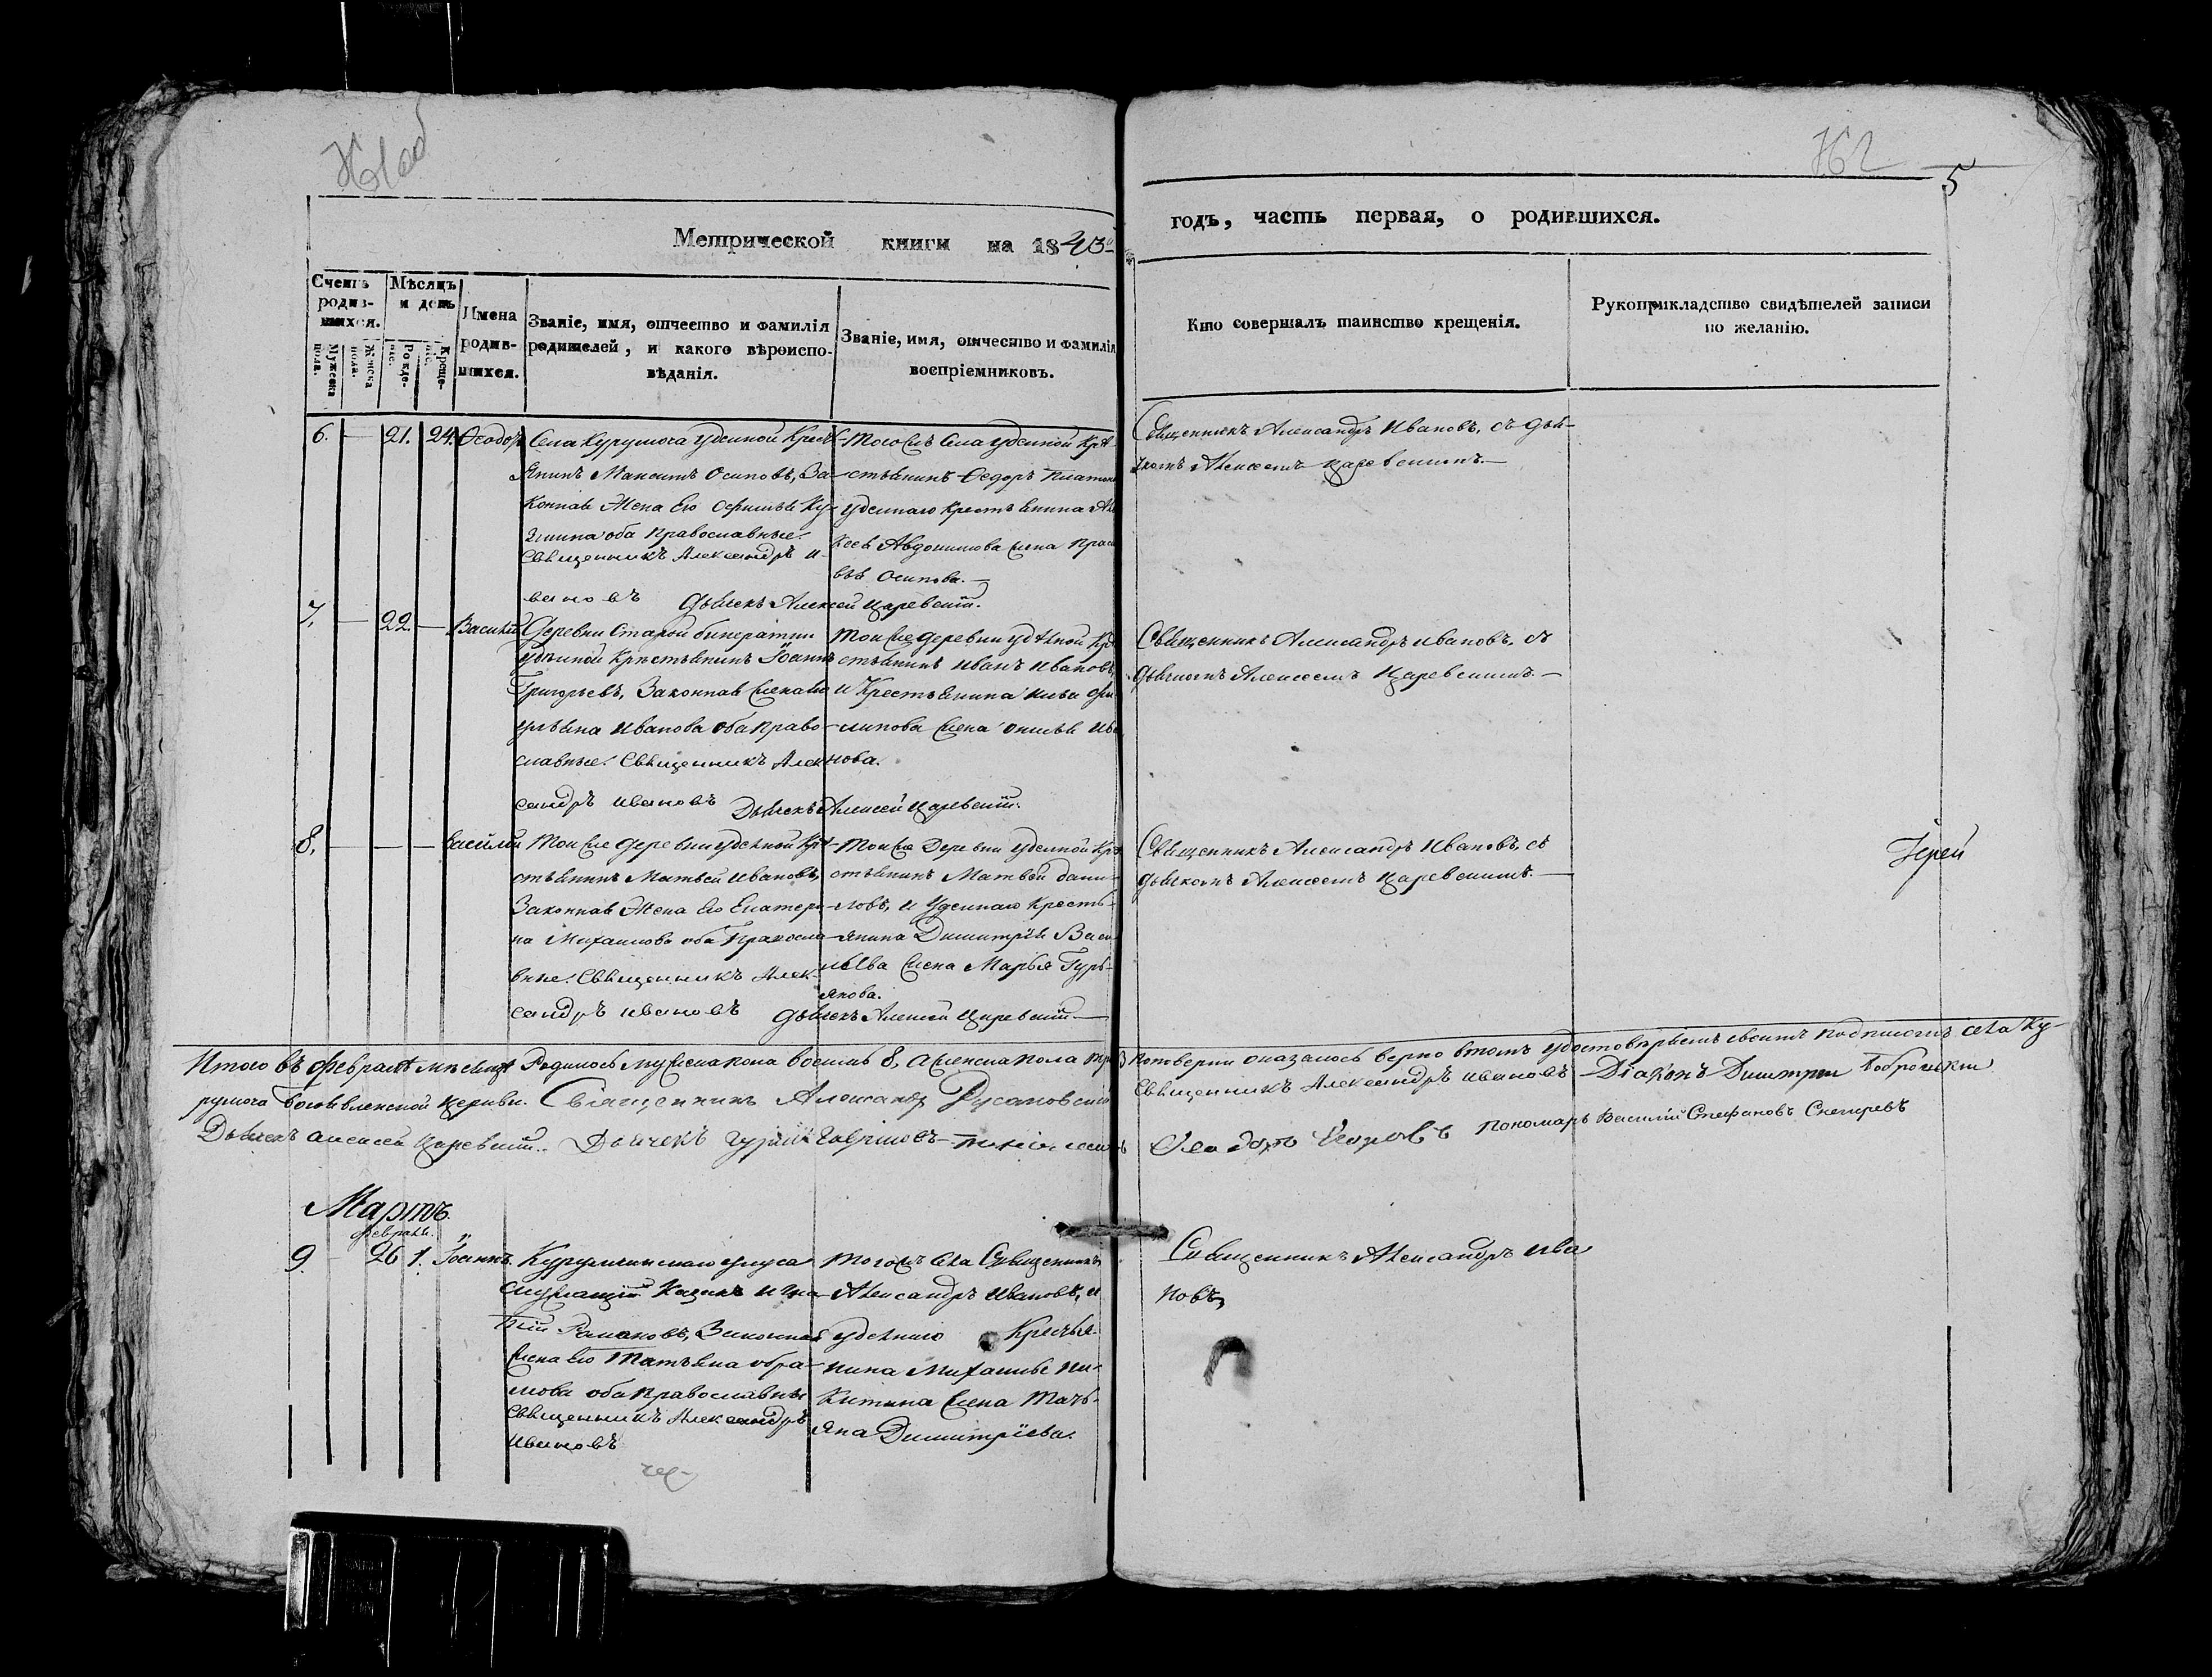 5
Метрической книги на 1843й
годъ, часть первая, о родившихся.
Счетъ родив-шихся.
Мужеска пола.
Женска пола.
Мѣсяцъ и день
Рожде-нiе.
Креще-нiе.
Имена родив-шихся.
Званiе, имя, отчество и фамилiя
родителей, и какого вѣроиспо-
вѣданiя.
Званiе, имя, отчество и фамилiя
воспрiемниковъ.
Кто совершалъ таинство крещенiя.
Рукоприкладство свидѣтелей записи
по желанiю.
6. — 21. 24. Ѳеодоръ
Села Курумоча удельной Кресть-
янинъ Максимъ Осиповъ, За-
конная Жена Его
оба Православные.
Священникъ Александръ И-
вановъ Дьячекъ Алексей Царевскiй.
Тогожъ Села удельной Кре-
стьянинъ Ѳедоръ
удельнаго Крестьянина
Авдокимова жена
Осипова. —
Священникъ Александръ Ивановъ, съ дья-
чкомъ Алексеемъ Царевскимъ. —
7. — 22. — Василiй
Деревни Старой Бинератки
удельной Крестьянинъ Iоаннъ
Григорьевъ, Законная жена его
Ульяна Иванова оба Право-
славные. Священникъ Алек-
сандръ Ивановъ Дьячекъ Алексей Царевскiй.
Тойже деревни удельной Кре-
стьянинъ Иванъ Ивановъ,
и Крестьянина Фи-
липова жена Ива-
нова.
Священникъ Александръ Ивановъ, съ
дьячкомъ Алексеемъ Царевскимъ. —
8. — — — Василiй
Тойже деревни удельной Кре-
стьянинъ Матвей Ивановъ,
Законная Жена Его Екатери-
на Михаилова оба Правосла-
вные. Священникъ Алек-
сандръ Ивановъ Дьячекъ Алексей Царевскiй —
Тойже Деревни удельной Кре-
стьянинъ Матвей Дани-
ловъ, и Удельнаго Кресть-
янина Димитрiя Васи-
льева жена Марья Гурь-
янова.
Священникъ Александръ Ивановъ, съ
дьячкомъ Алексеемъ Царевскимъ. —
Iерей
Итого въ Февралѣ мѣсяцѣ Родилось мужеска пола восемь 8, а женска пола три 3 по поверки оказалось верно в томъ удостовѣряемъ своимъ подписомъ села Ку-
румоча Богоявленской церкви. Священникъ Александр Русановский Священникъ Александръ Ивановъ Дiаконъ Димитрий
Дьячекъ Алексей Царевскiй. Дьячекъ Гурiй Гавриловъ — Ѳеодоръ Егоровъ Пономарь Василiй Стефановъ Снегиревъ
Мартъ.
Февраля.
9. — 26 1. Iоаннъ.
Курумчинскаго улуса
служащiй Казакъ Игна-
тiй Романовъ, Законная
Жена Его Татьяна Абра-
мова оба Православные
Священникъ Александръ
Ивановъ
Тогожъ села Священникъ
Александръ Ивановъ, и
удельнаго Кресья-
нина Михаила Ни-
китина Жена Тать-
яна Димитрiева.
Священникъ Александръ Ива
новъ,